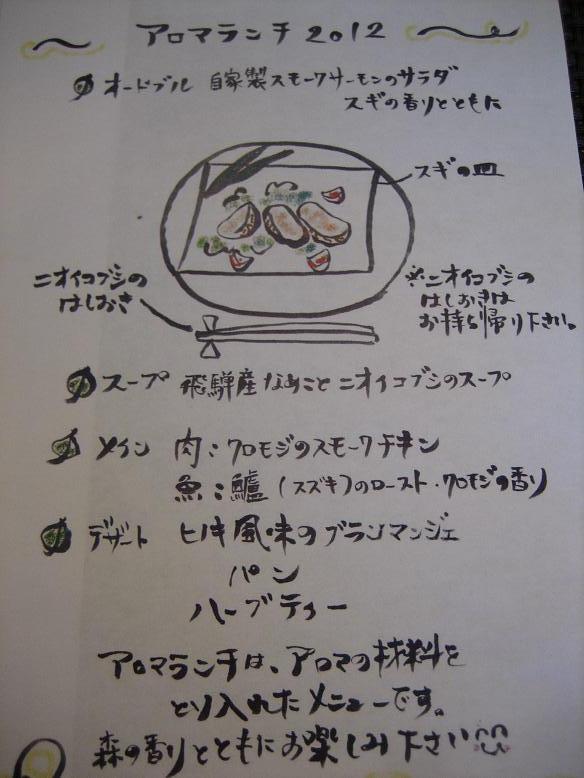 アロマランチ 2012
オードブル 自家製スモークサーモンのサラダ
スギの香りとともに
スギの皿
ニオイコブシの
はしおき
※ニオイコブシの
はしおきは
お持ち帰り下さい。
スープ 飛騨産なめことニオイコブシのスープ
メイン 肉：クロモジのスモークチキン
魚：鱸（スズキ）のロースト・クロモジの香り
デザート ヒノキ風味のブランマンジェ
パン
ハーブティー
アロマランチは、アロマの材料を
とり入れたメニューです。
森の香りとともにお楽しみ下さい